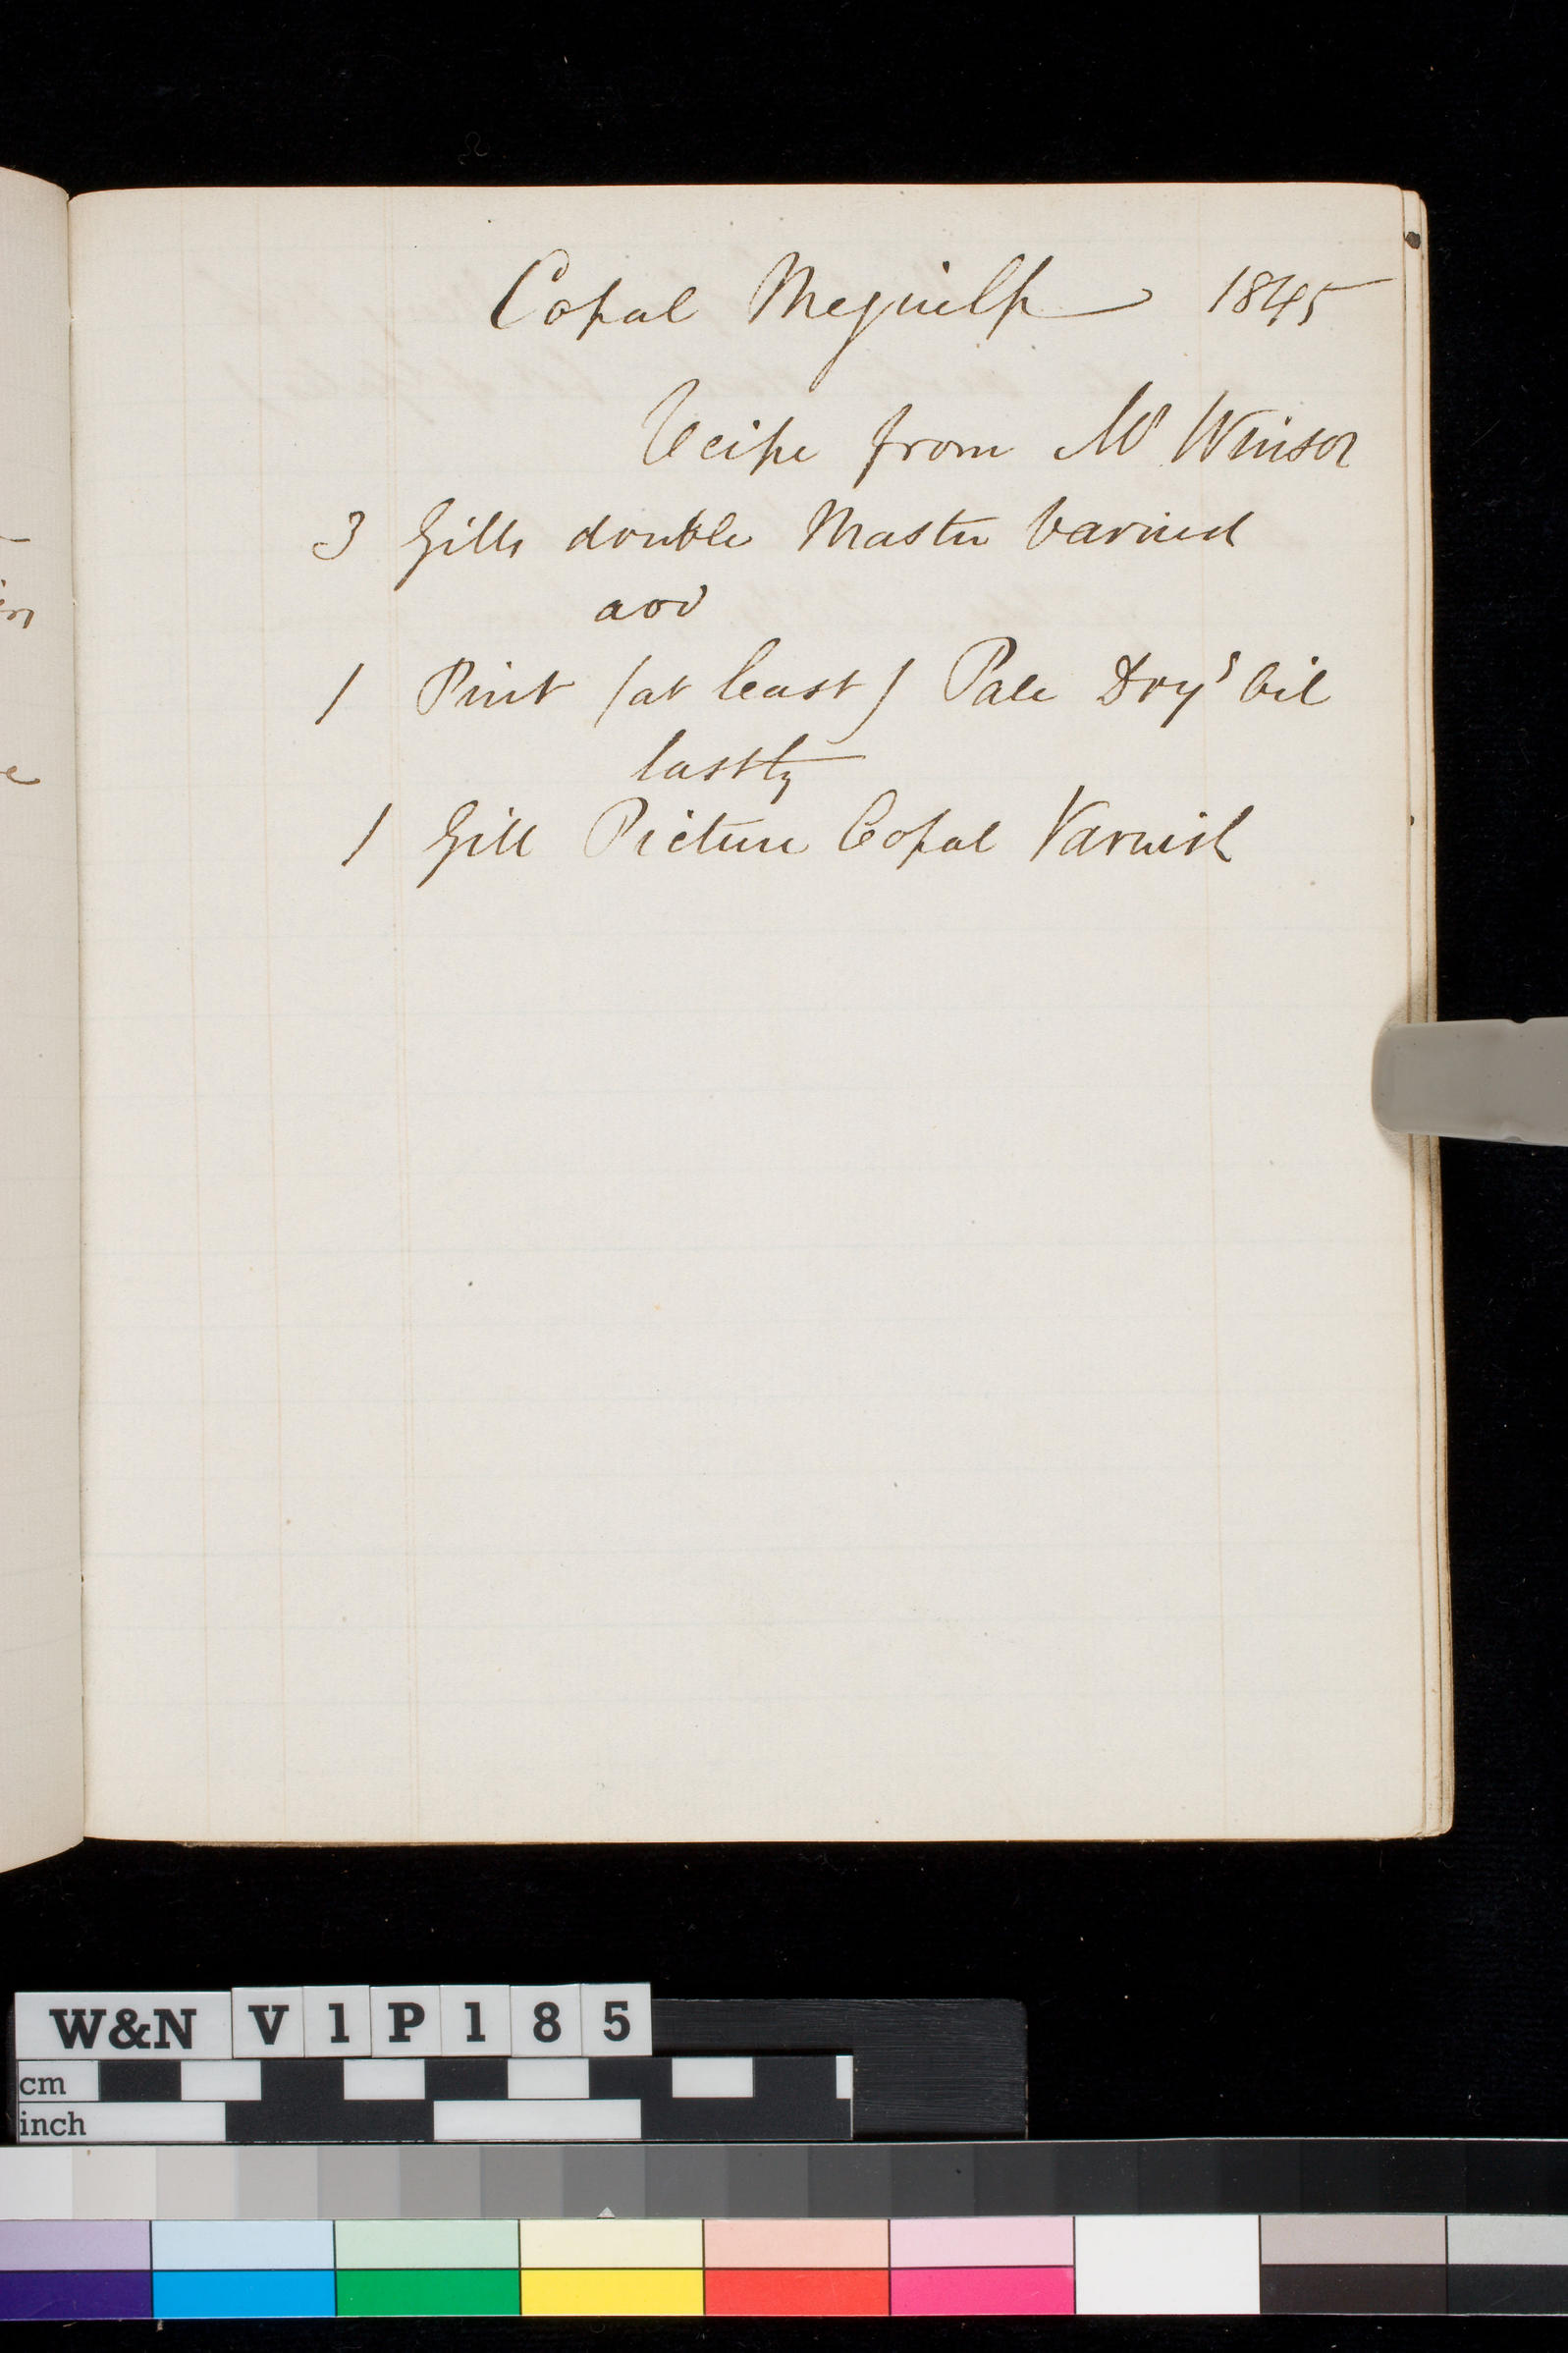 Copal Meguilp 1845
Recipe from Mr Winsor
3 Gills double Mastic Varnish
add
1 Pint (at least) Pale Dryg Oil
lastly
1 Gill Picture Copal Varnish
W&N V1P185
cm
inch